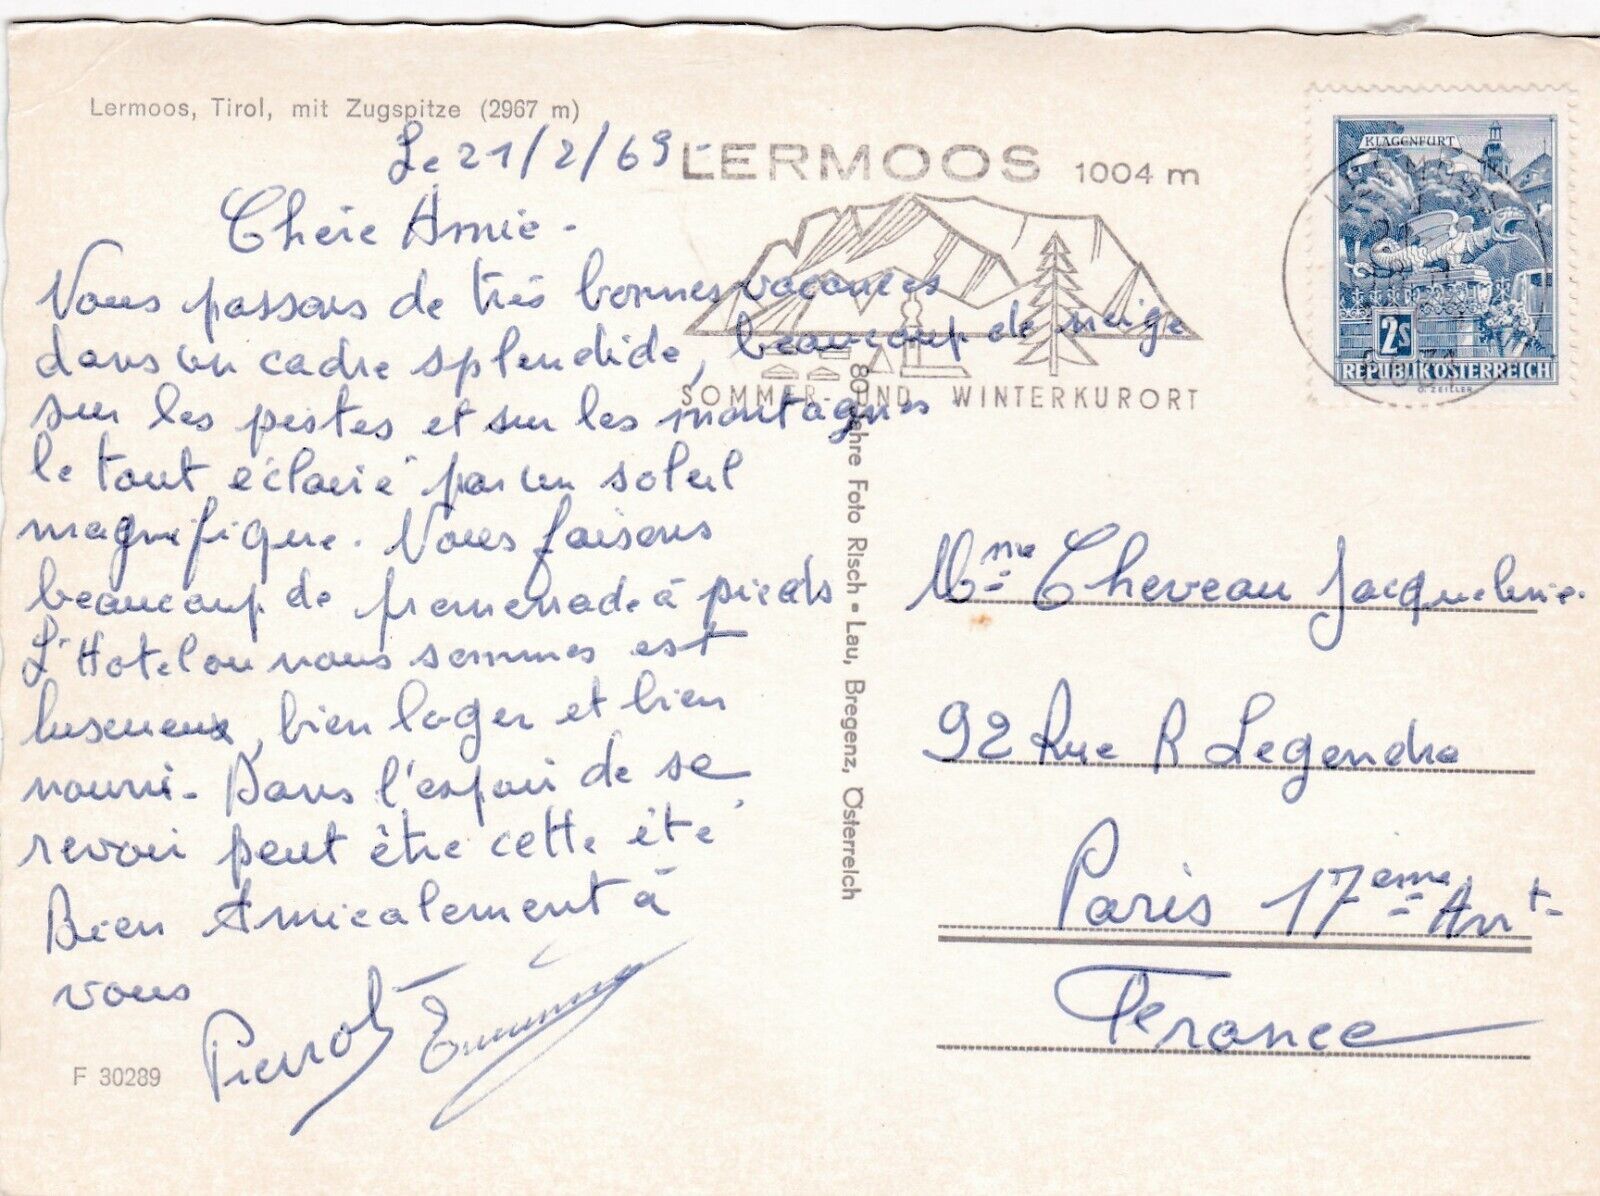 Lermoos, Tirol, mit Zugspitze (2967 m)
Le 21/2/69-
Chére Amie-
Nous passons de très bonnes vacances
dans un cadre splendide, beaucoup de neige
sur les pistes et sur les montagnes
le tout éclairé par un soleil
magnifique. Nous faisons
beaucoup de promenade à pieds
L'Hotel ou nous sommes est
luxueux, bien loger et bien
nourri- Dans l'espoir de se
revoir peut être cette été
Bien Amicalement à
vous
Pierrot
F 30289
LERMOOS 1004 m
SOMMER- UND WINTERKURORT
80 Jahre Foto Risch-Lau, Bregenz, Österreich
KLAGENFURT
2S
REPUBLIK ÖSTERREICH
O. ZEILLER
Mme Cheveau Jacqueline.
92 Rue R Legendre
Paris 17eme Arrt-
France